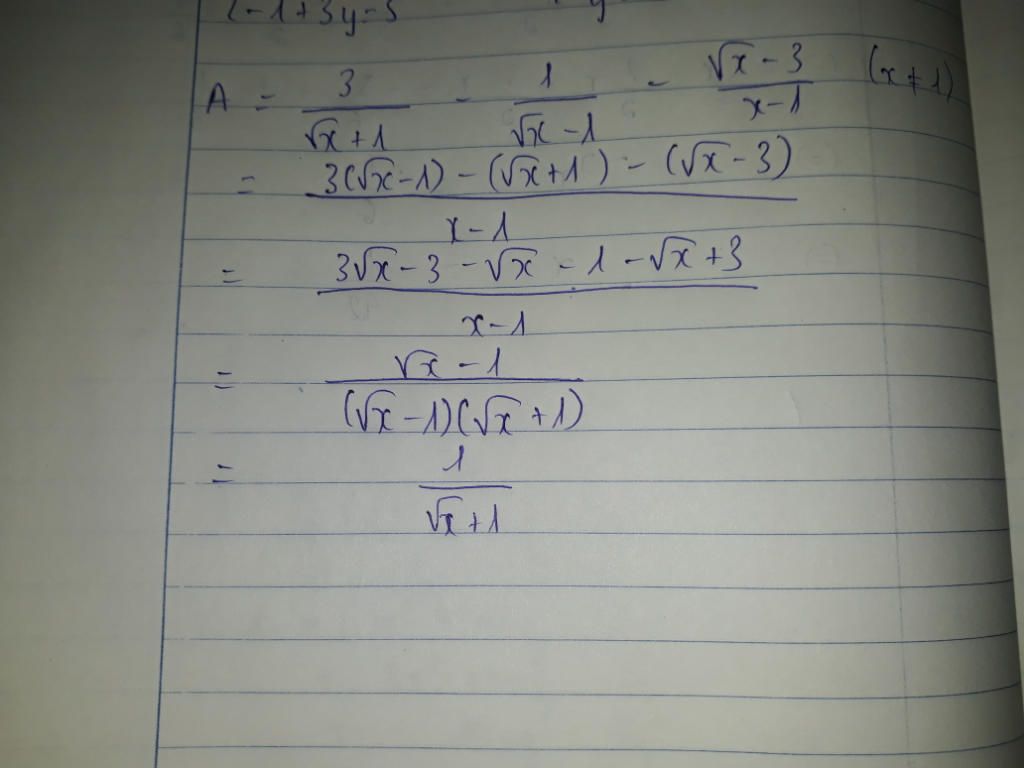 2-1+3y=5
A = 3/(√x+1) - 1/(√x-1) - (√x-3)/(x-1) (x≠1)
= (3(√x-1) - (√x+1) - (√x-3))/(x-1)
= (3√x-3-√x-1-√x+3)/(x-1)
= (√x-1)/((√x-1)(√x+1))
= 1/(√x+1)